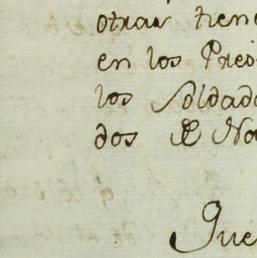 otras tiene
en los Presi
los Soldad
dos de Na
Que